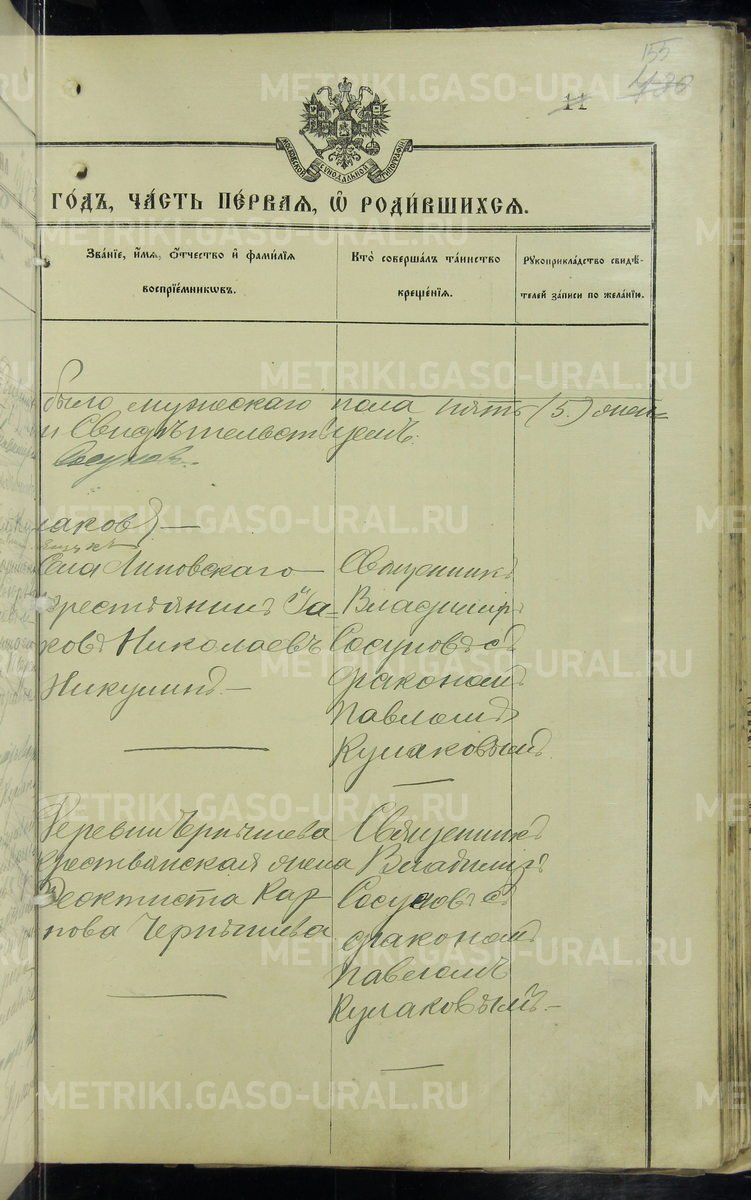 155
11
МОСКОВСКОЙ СѴНОДАЛЬНОЙ ТИПОГРАФІИ
ГО́ДЪ, ЧА́СТЬ ПЕ́РВАЯ, Ѽ РОДИ́ВШИХСЯ.
Зва́нїе, и́мя, ѻ҆́тчество и҆ фами́лїя
воспрїе́мникѡвъ.
Кто̀ соверша́лъ та́инство
креще́нїя.
Рꙋкоприкла́дство свидѣ́-
телей за́писи по жела́нїю.
было мужескаго пола пять (5.)
и Свидѣтельствуемъ:
лаковъ
Села Липовскаго
крестьянинъ Іа-
ковъ Николаевъ
Никулинъ. —
Священникъ
Владимиръ
Сосуновъ съ
діакономъ
Павломъ
Кулаковымъ
Деревни Чернышева
крестьянская жена
Феоктиста Кар
пова Чернышева
Священникъ
Владимиръ
Сосуновъ съ
діакономъ
Павломъ
Кулаковымъ. —
METRIKI.GASO-URAL.RU